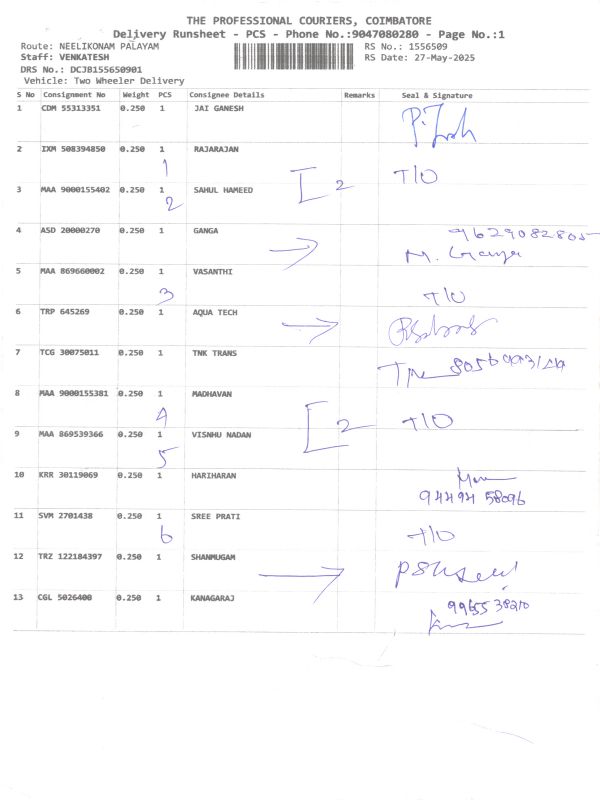 THE PROFESSIONAL COURIERS, COIMBATORE
Delivery Runsheet - PCS - Phone No.:9047080280 - Page No.:1
Route: NEELIKONAM PALAYAM RS No.: 1556509
Staff: VENKATESH RS Date: 27-May-2025
DRS No.: DCJB155650901
Vehicle: Two Wheeler Delivery
S No Consignment No Weight PCS Consignee Details Remarks Seal & Signature
1 CDM 55313351 0.250 1 JAI GANESH
2 IXM 508394850 0.250 1 RAJARAJAN
1 2 T/O
3 MAA 9000155402 0.250 1 SAHUL HAMEED
2
4 ASD 20000270 0.250 1 GANGA 9629082805
M. Ganga
5 MAA 869660002 0.250 1 VASANTHI
3 T/O
6 TRP 645269 0.250 1 AQUA TECH
7 TCG 30075011 0.250 1 TNK TRANS
8 MAA 9000155381 0.250 1 MADHAVAN
4 2 T/O
9 MAA 869539366 0.250 1 VISNHU NADAN
5
10 KRR 30119069 0.250 1 HARIHARAN
94494 58096
11 SVM 2701438 0.250 1 SREE PRATI
6 T/O
12 TRZ 122184397 0.250 1 SHANMUGAM
13 CGL 5026400 0.250 1 KANAGARAJ 99655 38210